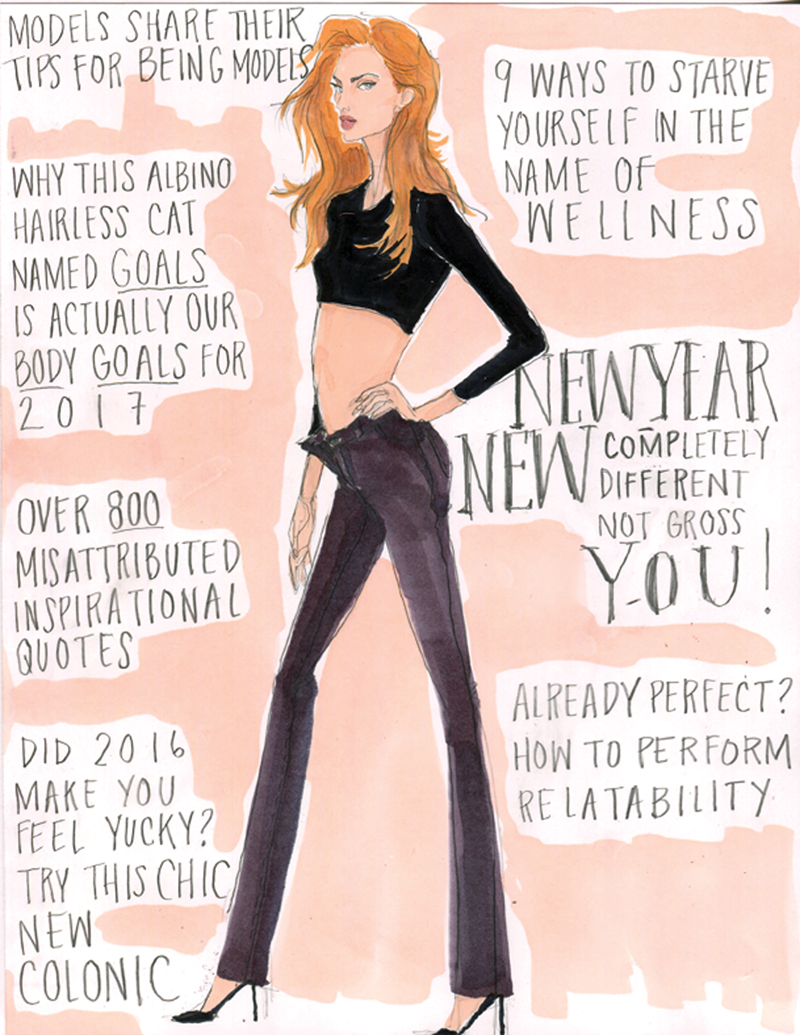 MODELS SHARE THEIR
TIPS FOR BEING MODELS
WHY THIS ALBINO
HAIRLESS CAT
NAMED GOALS
IS ACTUALLY OUR
BODY GOALS FOR
2017
OVER 800
MISATTRIBUTED
INSPIRATIONAL
QUOTES
DID 2016
MAKE YOU
FEEL YUCKY?
TRY THIS CHIC
NEW
COLONIC
9 WAYS TO STARVE
YOURSELF IN THE
NAME OF
WELLNESS
NEW YEAR
NEW COMPLETELY
DIFFERENT
NOT GROSS
YOU!
ALREADY PERFECT?
HOW TO PERFORM
RELATABILITY